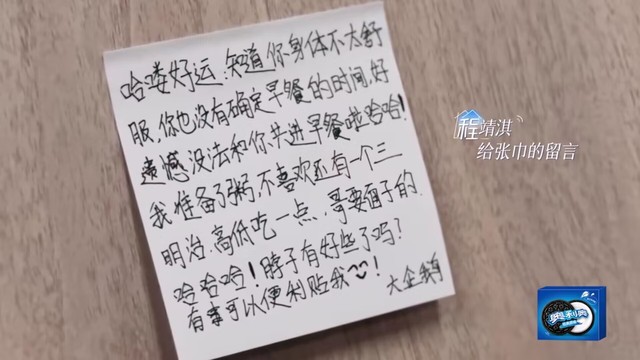 哈喽好运,知道你身体不太舒
服,你也没有确定早餐的时间,好
遗憾没法和你共进早餐啦哈哈!
我准备了粥,不喜欢还有一个三
明治,高低吃一点,哥要面子的.
哈哈哈!脖子有好些了吗?
有事可以便利贴我!
大企鹅
程靖淇
给张巾的留言
奥利奥